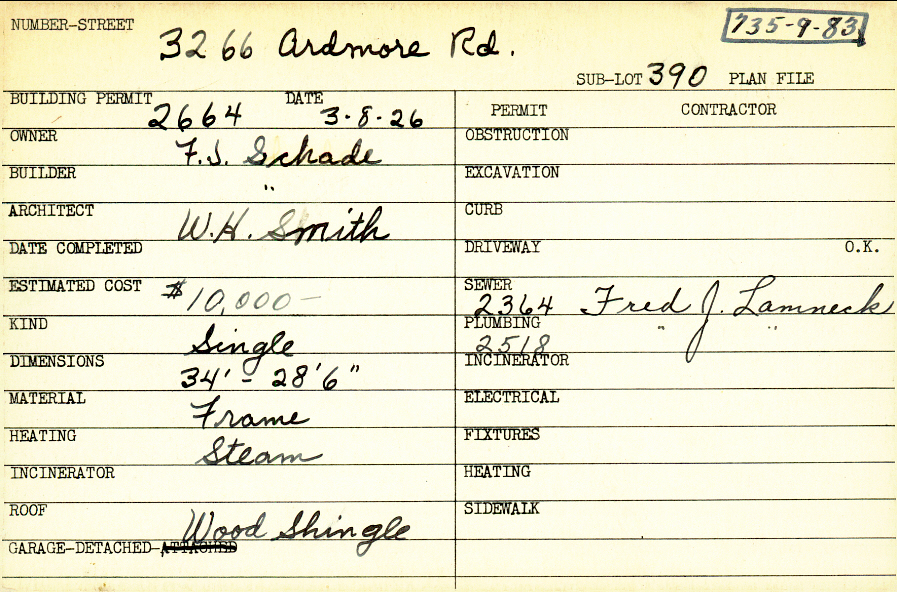 735-9-83
NUMBER-STREET 3266 Ardmore Rd.
SUB-LOT 390 PLAN FILE
BUILDING PERMIT 2664 DATE 3-8-26
OWNER F.J. Schade
BUILDER "
ARCHITECT W.H. Smith
DATE COMPLETED
ESTIMATED COST $10,000—
KIND Single
DIMENSIONS 34' - 28'6"
MATERIAL Frame
HEATING Steam
INCINERATOR
ROOF Wood Shingle
GARAGE-DETACHED-ATTACHED
PERMIT CONTRACTOR
OBSTRUCTION
EXCAVATION
CURB
DRIVEWAY O.K.
SEWER 2364 Fred J. Lamneck
PLUMBING 2518 " "
INCINERATOR
ELECTRICAL
FIXTURES
HEATING
SIDEWALK